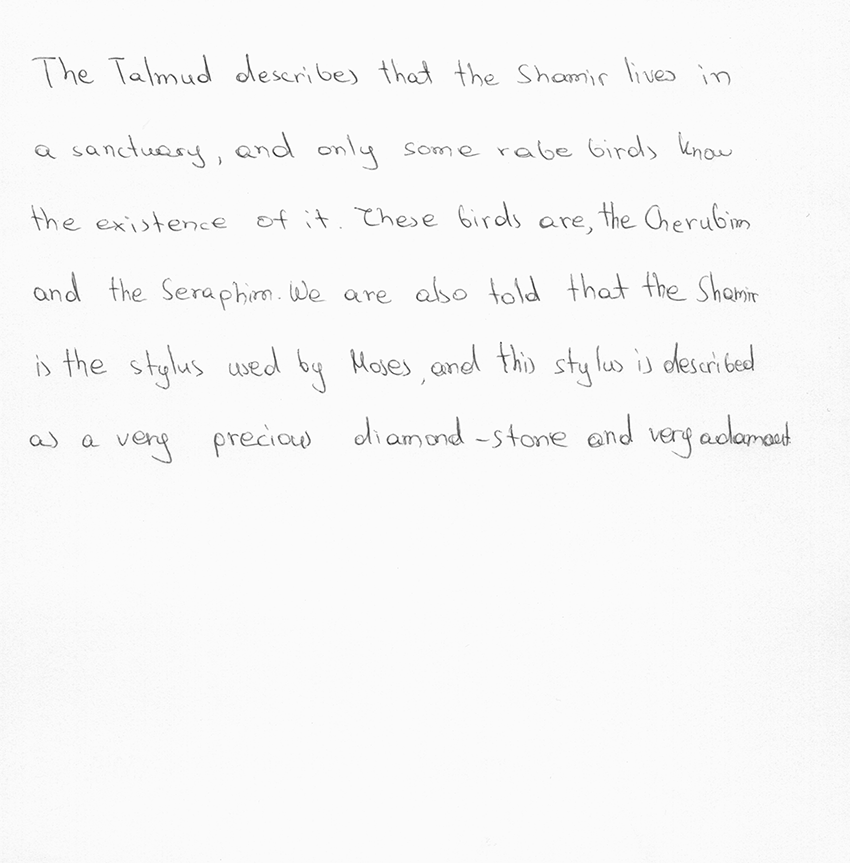 The Talmud describes that the Shamir lives in
a sanctuary, and only some rabe birds know
the existence of it. These birds are, the Cherubim
and the Seraphim. We are also told that the Shamir
is the stylus used by Moses, and this stylus is described
as a very precious diamond-stone and very